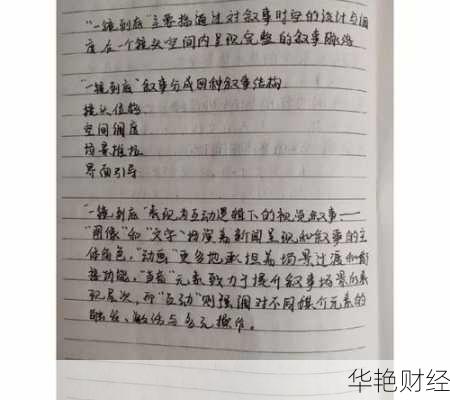 “一镜到底”主要指通过对叙事时空的设计与调
度在一个镜头空间内呈现完整的叙事脉络
“一镜到底”叙事分成四种叙事结构
镜头位移
空间调度
场景推拉
界面引导
“一镜到底”表现为互动逻辑下的视觉叙事——
“图像”和“文字”扮演着新闻呈现和叙事的主
体角色，“动画”更多地承担着场景过渡和衔
接功能，“声音”元素致力于提升叙事场景的表
现层次，而“互动”则强调对不同媒介元素的
融合、激活与多元操作。
华艳财经